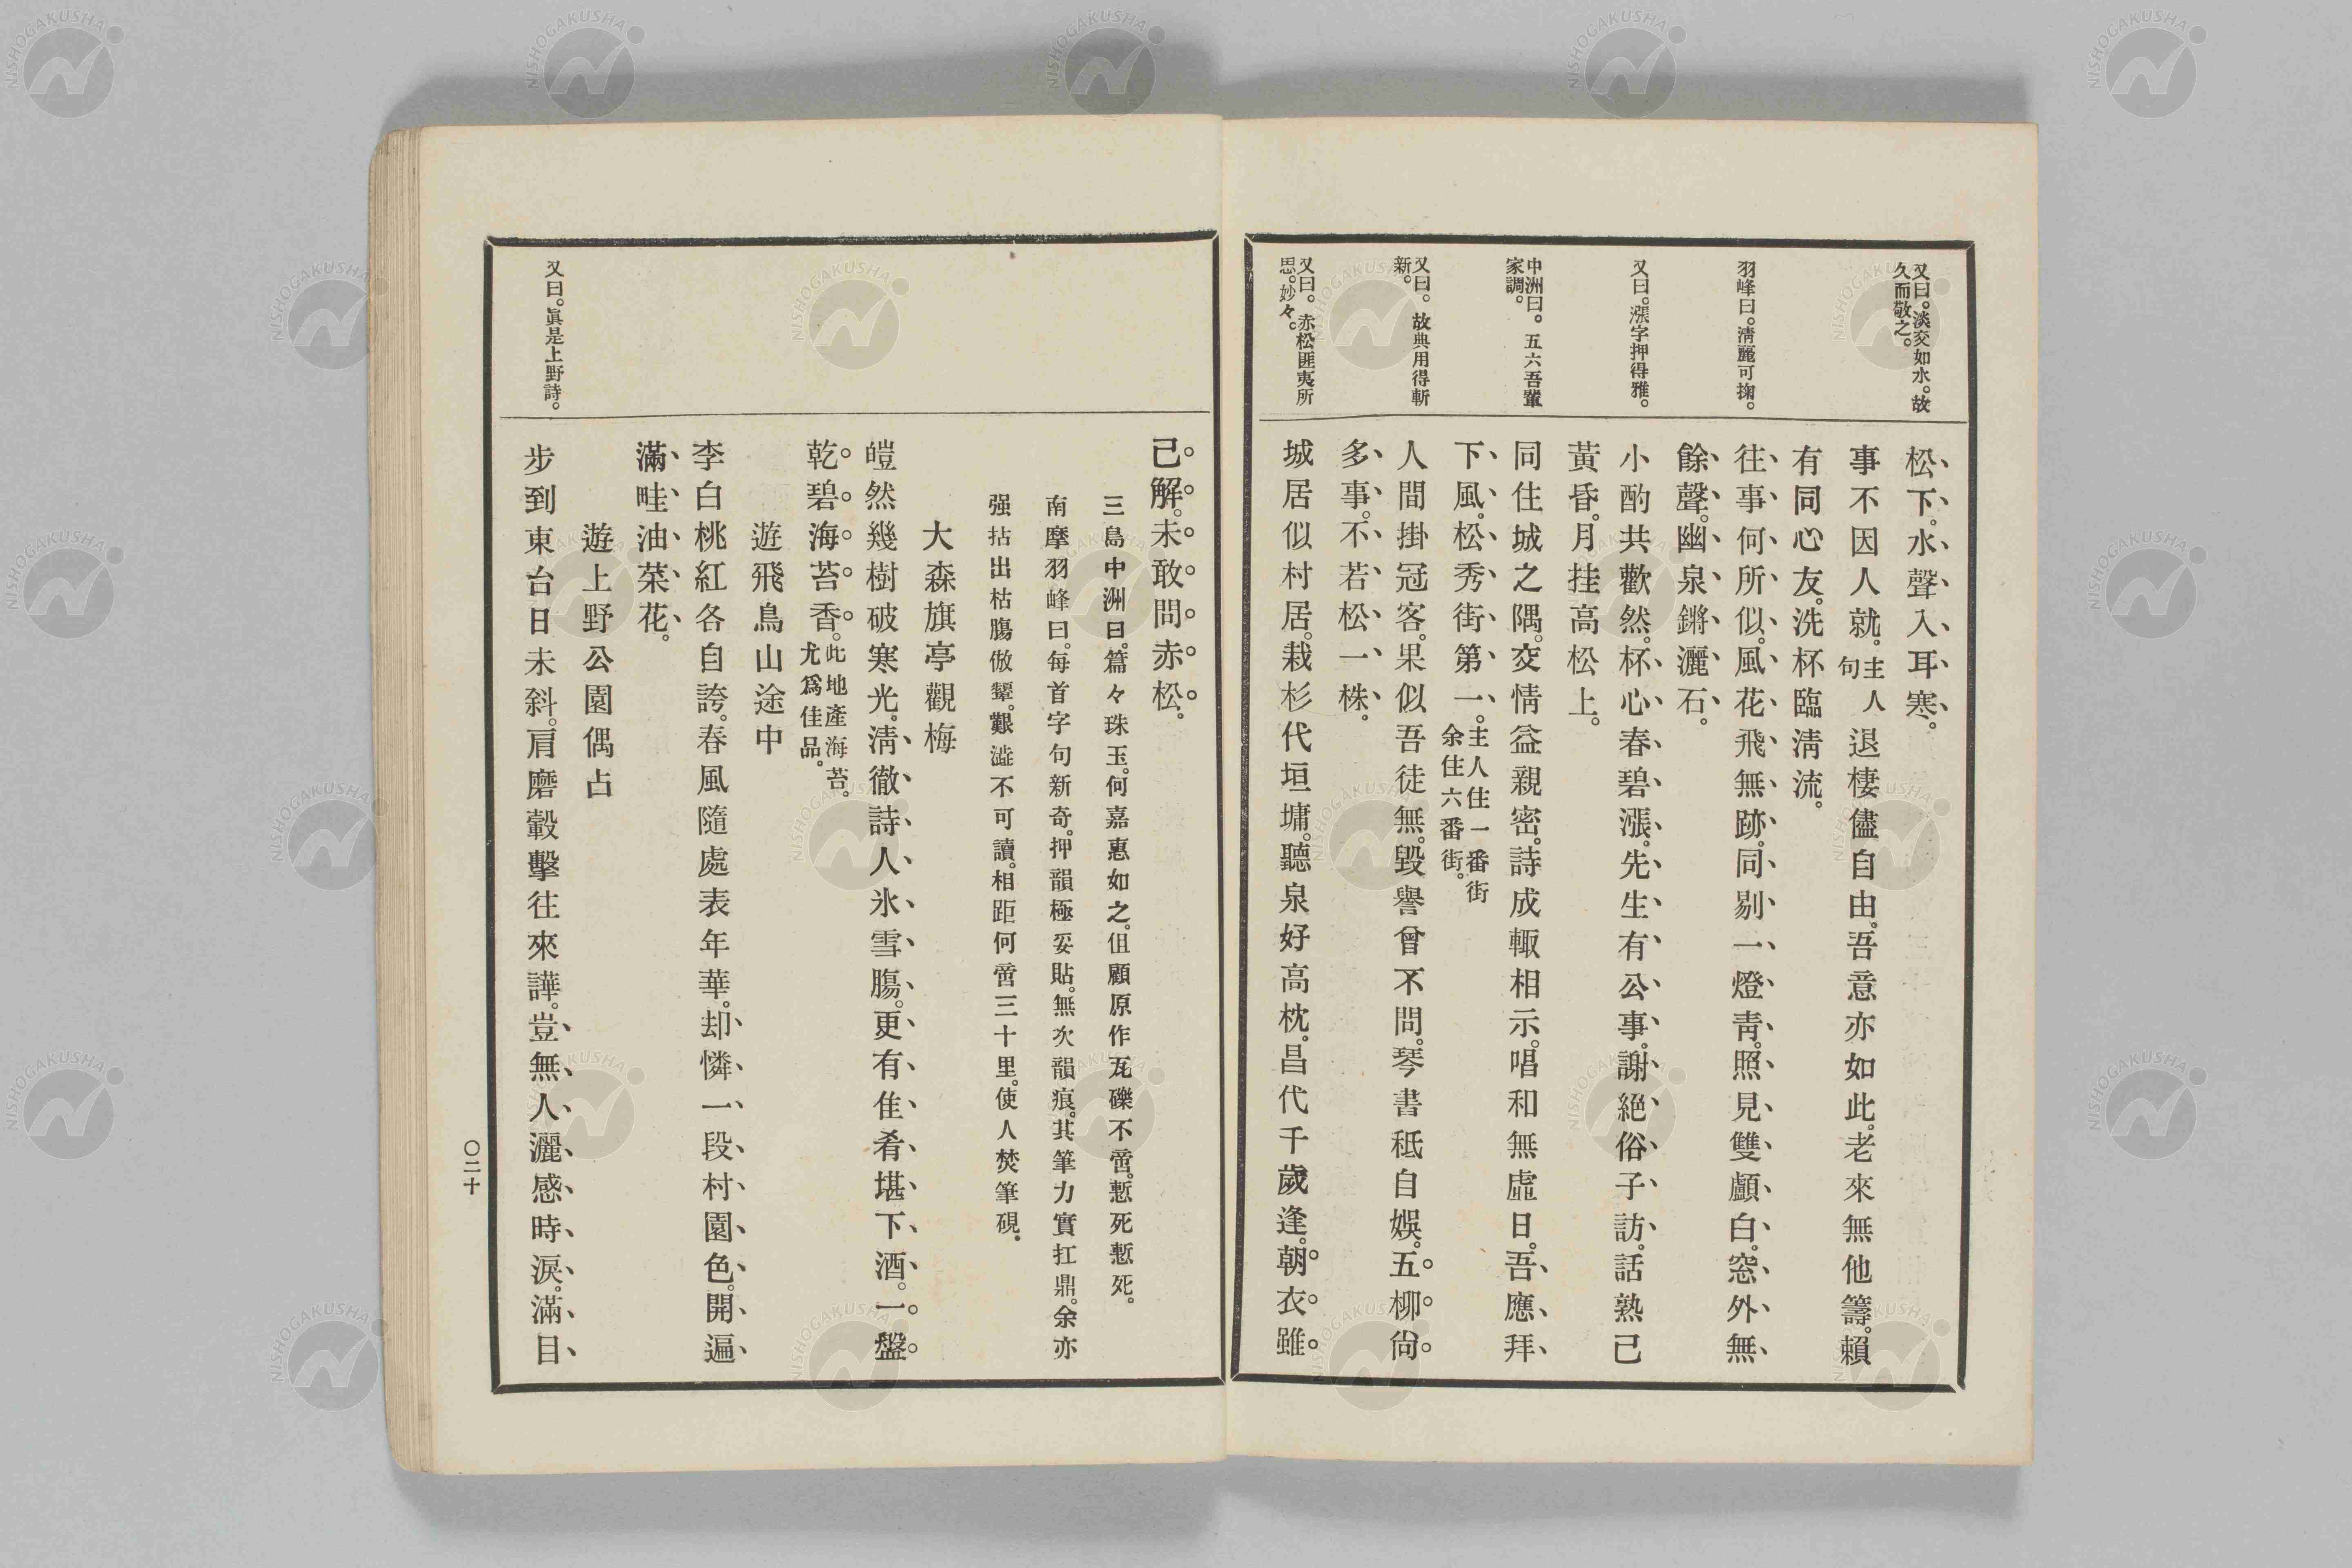 又曰。淡交如水。故
久而敬之。
羽峰曰。淸麗可掬。
又曰。漲字押得雅。
中洲曰。五六吾輩
家調。
又曰。故典用得斬
新。
又曰。赤松匪夷所
思。妙々。
松下。水聲入耳寒。
事不因人就。主人句退棲儘自由。吾意亦如此。老來無他籌。賴
有同心友。洗杯臨淸流。
往事何所似。風花飛無跡。同剔一燈靑。照見雙顱白。窓外無
餘聲。幽泉鏘灑石。
小酌共歡然。杯心春碧漲。先生有公事。謝絕俗子訪。話熟已
黃昏。月挂高松上。
同住城之隅。交情益親密。詩成輙相示。唱和無虛日。吾應拜
下風。松秀街第一。主人住一番街余住六番街。
人間掛冠客。果似吾徒無。毀譽曾不問。琴書秪自娛。五柳尙
多事。不若松一株。
城居似村居。栽杉代垣墉。聽泉好高枕。昌代千歲逢。朝衣雖
已解。未敢問赤松。
三島中洲曰。篇々珠玉。何嘉惠如之。但顧原作瓦礫不啻。慙死慙死。
南摩羽峰曰。每首字句新奇。押韻極妥貼。無次韻痕。其筆力實扛鼎。余亦
强拈出枯膓倣顰。艱澁不可讀。相距何啻三十里。使人焚筆硯。
大森旗亭觀梅
皚然幾樹破寒光。淸徹詩人氷雪膓。更有佳肴堪下酒。一盤
乾碧海苔香。此地產海苔。尤爲佳品。
遊飛鳥山途中
李白桃紅各自誇。春風隨處表年華。却憐一段村園色。開遍
滿畦油菜花。
遊上野公園偶占
步到東台日未斜。肩磨轂擊往來譁。豈無人灑感時淚。滿目
又曰。眞是上野詩。
〇二十
NISHOGAKUSHA